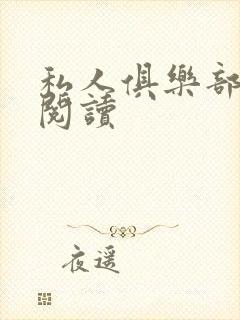 私人俱樂部
閱讀
夜遥